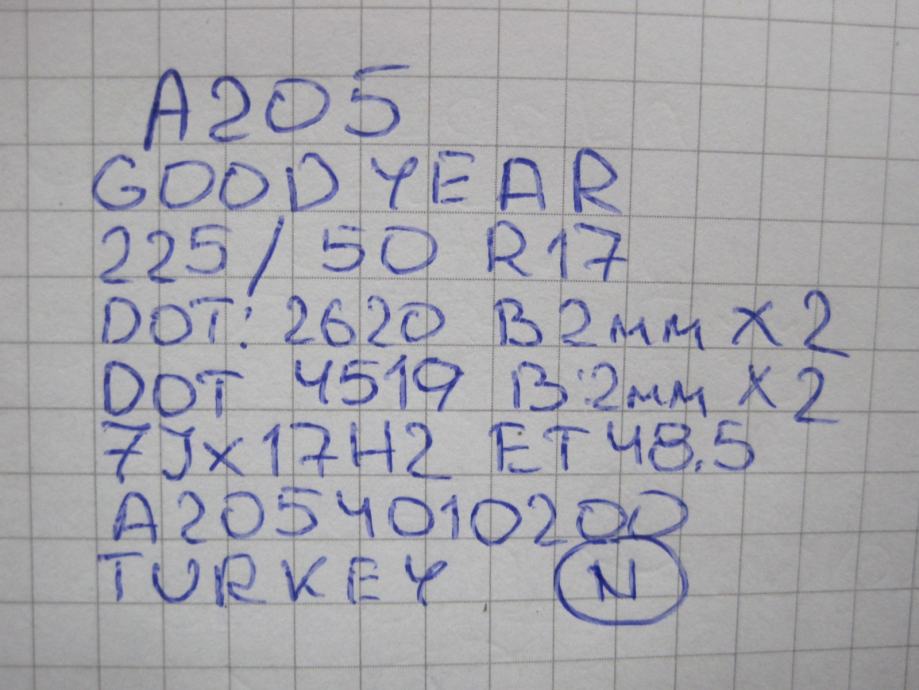 A205
GOODYEAR
225/50 R17
DOT: 2620 B 2мм X 2
DOT 4519 B:2мм X 2
7Jx17H2 ET 48.5
A2054010200
TURKEY N